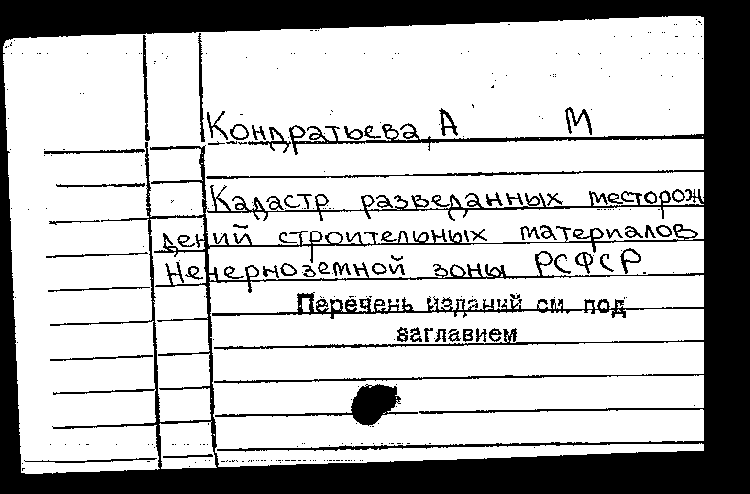 Кондратьева, А М
Кадастр разведанных месторож
дений строительных материалов
Нечерноземной зоны РСФСР.
Перечень изданий см. под
заглавием